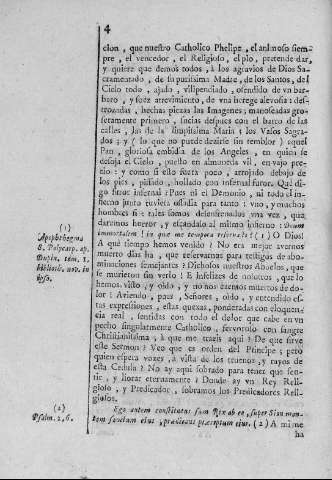 4
cion, que nuestro Catholico Phelipe, el animoso siem-
pre, el vencedor, el Religioso, el pio, pretende dar,
y quiere que demos todos, à los agravios de Dios Sa-
cramentado, de su purissima Madre, de los Santos, del
Cielo todo, ajado, vilipendiado, ofendido de un bar-
baro, y soèz atrevimiento, de una herege alevosia: des-
trozadas, hechas piezas las Imagenes; manoseadas gros-
seramente primero, sucias despues con el barro de las
calles, las de la Purissima Maria; los Vasos Sagra-
dos; y (lo que no puede dezirse sin temblor) aquel
Pan, gloriosa embidia de los Angeles, en quien se
desaja el Cielo, puesto en almoneda vil, en vajo pre-
cio; y como si esto fuera poco, arrojado debajo de
los pies, pisado, hollado con infernal furor. Què di-
go furor infernal? Pues ni el Demonio, ni todo el in-
fierno junto tuviera ossadia para tanto; uno, y muchos
hombres si: tales somos desenfrenados una vez, que
daremos horror, y escandalo al mismo infierno: Deum
immortalem! in que me tempora reservasti (1) O Dios!
A què tiempo hemos venido? No era mejor avernos
muerto dias ha, que reservarnos para testigos de abo-
minaciones semejantes? Dichosos nuestros Abuelos, que
se murieron sin verlo! E Infelices de nosotros, que lo
hemos visto, y oìdo, y no nos caemos muertos de do-
lor! Aviendo, pues, Señores, oìdo, y entendido es-
tas expressiones, estas quexas, ponderadas con eloquen-
cia real, sentidas con todo el dolor que cabe en un
pecho singularmente Catholico, fervoroso con sangre
Christianissima, à que me traeis aqui? De que sirve
este Sermon? Veo que es orden del Principe; pero
quien espera voces, à vista de los truenos, y rayos de
esta Cedula? No ay aqui sobrado para tener que sen-
tir, y llorar eternamente? Donde ay un Rey Reli-
gioso, y Predicador, sobramos los Predicadores Reli-
giosos.
Ego autem constitutus sum Rex ab eo, super Sion mon-
tem sanctum ejus, prædicans præceptum ejus. (2) A mi me
ha
(1)
Apophthegma
S. Polycarp. ap.
Dupin, tom. 1.
biblioth. nov. in
ipso.
(2)
Psalm. 2, 6.